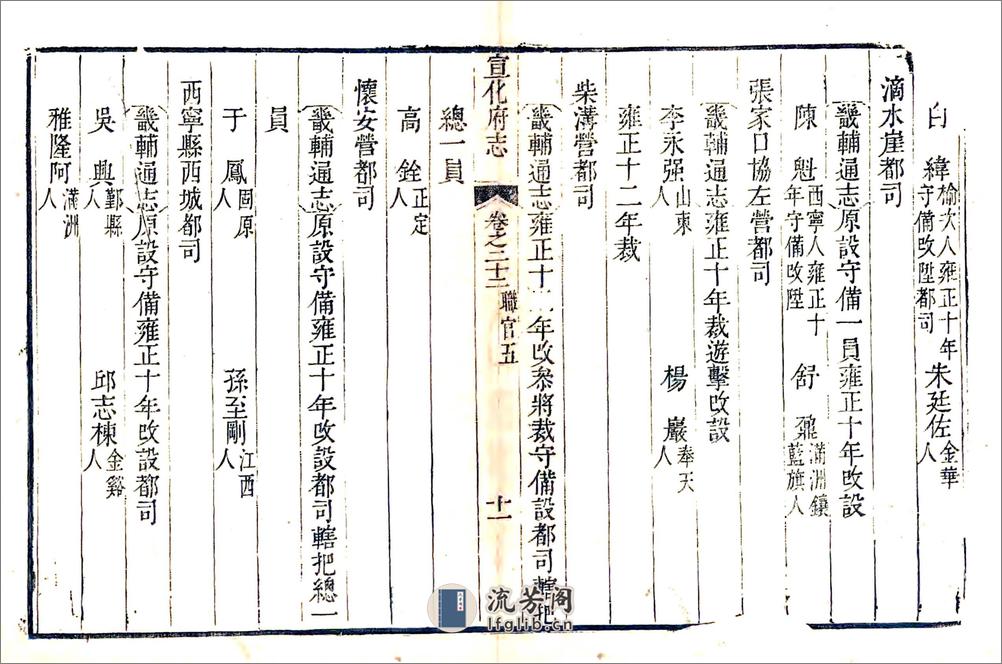 白　緯榆次人雍正十年守備改陞都司　朱廷佐金華人
滴水崖都司
畿輔通志原設守備一員雍正十年改設
陳　魁西寧人雍正十年守備改陞　舒　鼐滿洲鑲藍旗人
張家口協左營都司
畿輔通志雍正十年裁遊擊改設
李永强山東人　楊　巖奉天人
雍正十二年裁
柴溝營都司
畿輔通志雍正十二年改叅將裁守備設都司轄把
宣化府志　卷之二十三　職官五　十一
總一員
高　銓正定人
懷安營都司
畿輔通志原設守備雍正十年改設都司轄把總一
員
于　鳳固原人　孫至剛江西人
西寧縣西城都司
畿輔通志原設守備雍正十年改設都司
吳　興鄞縣人　邱志棟金谿人
雅隆阿滿洲人
流芳阁
lfglib.cf